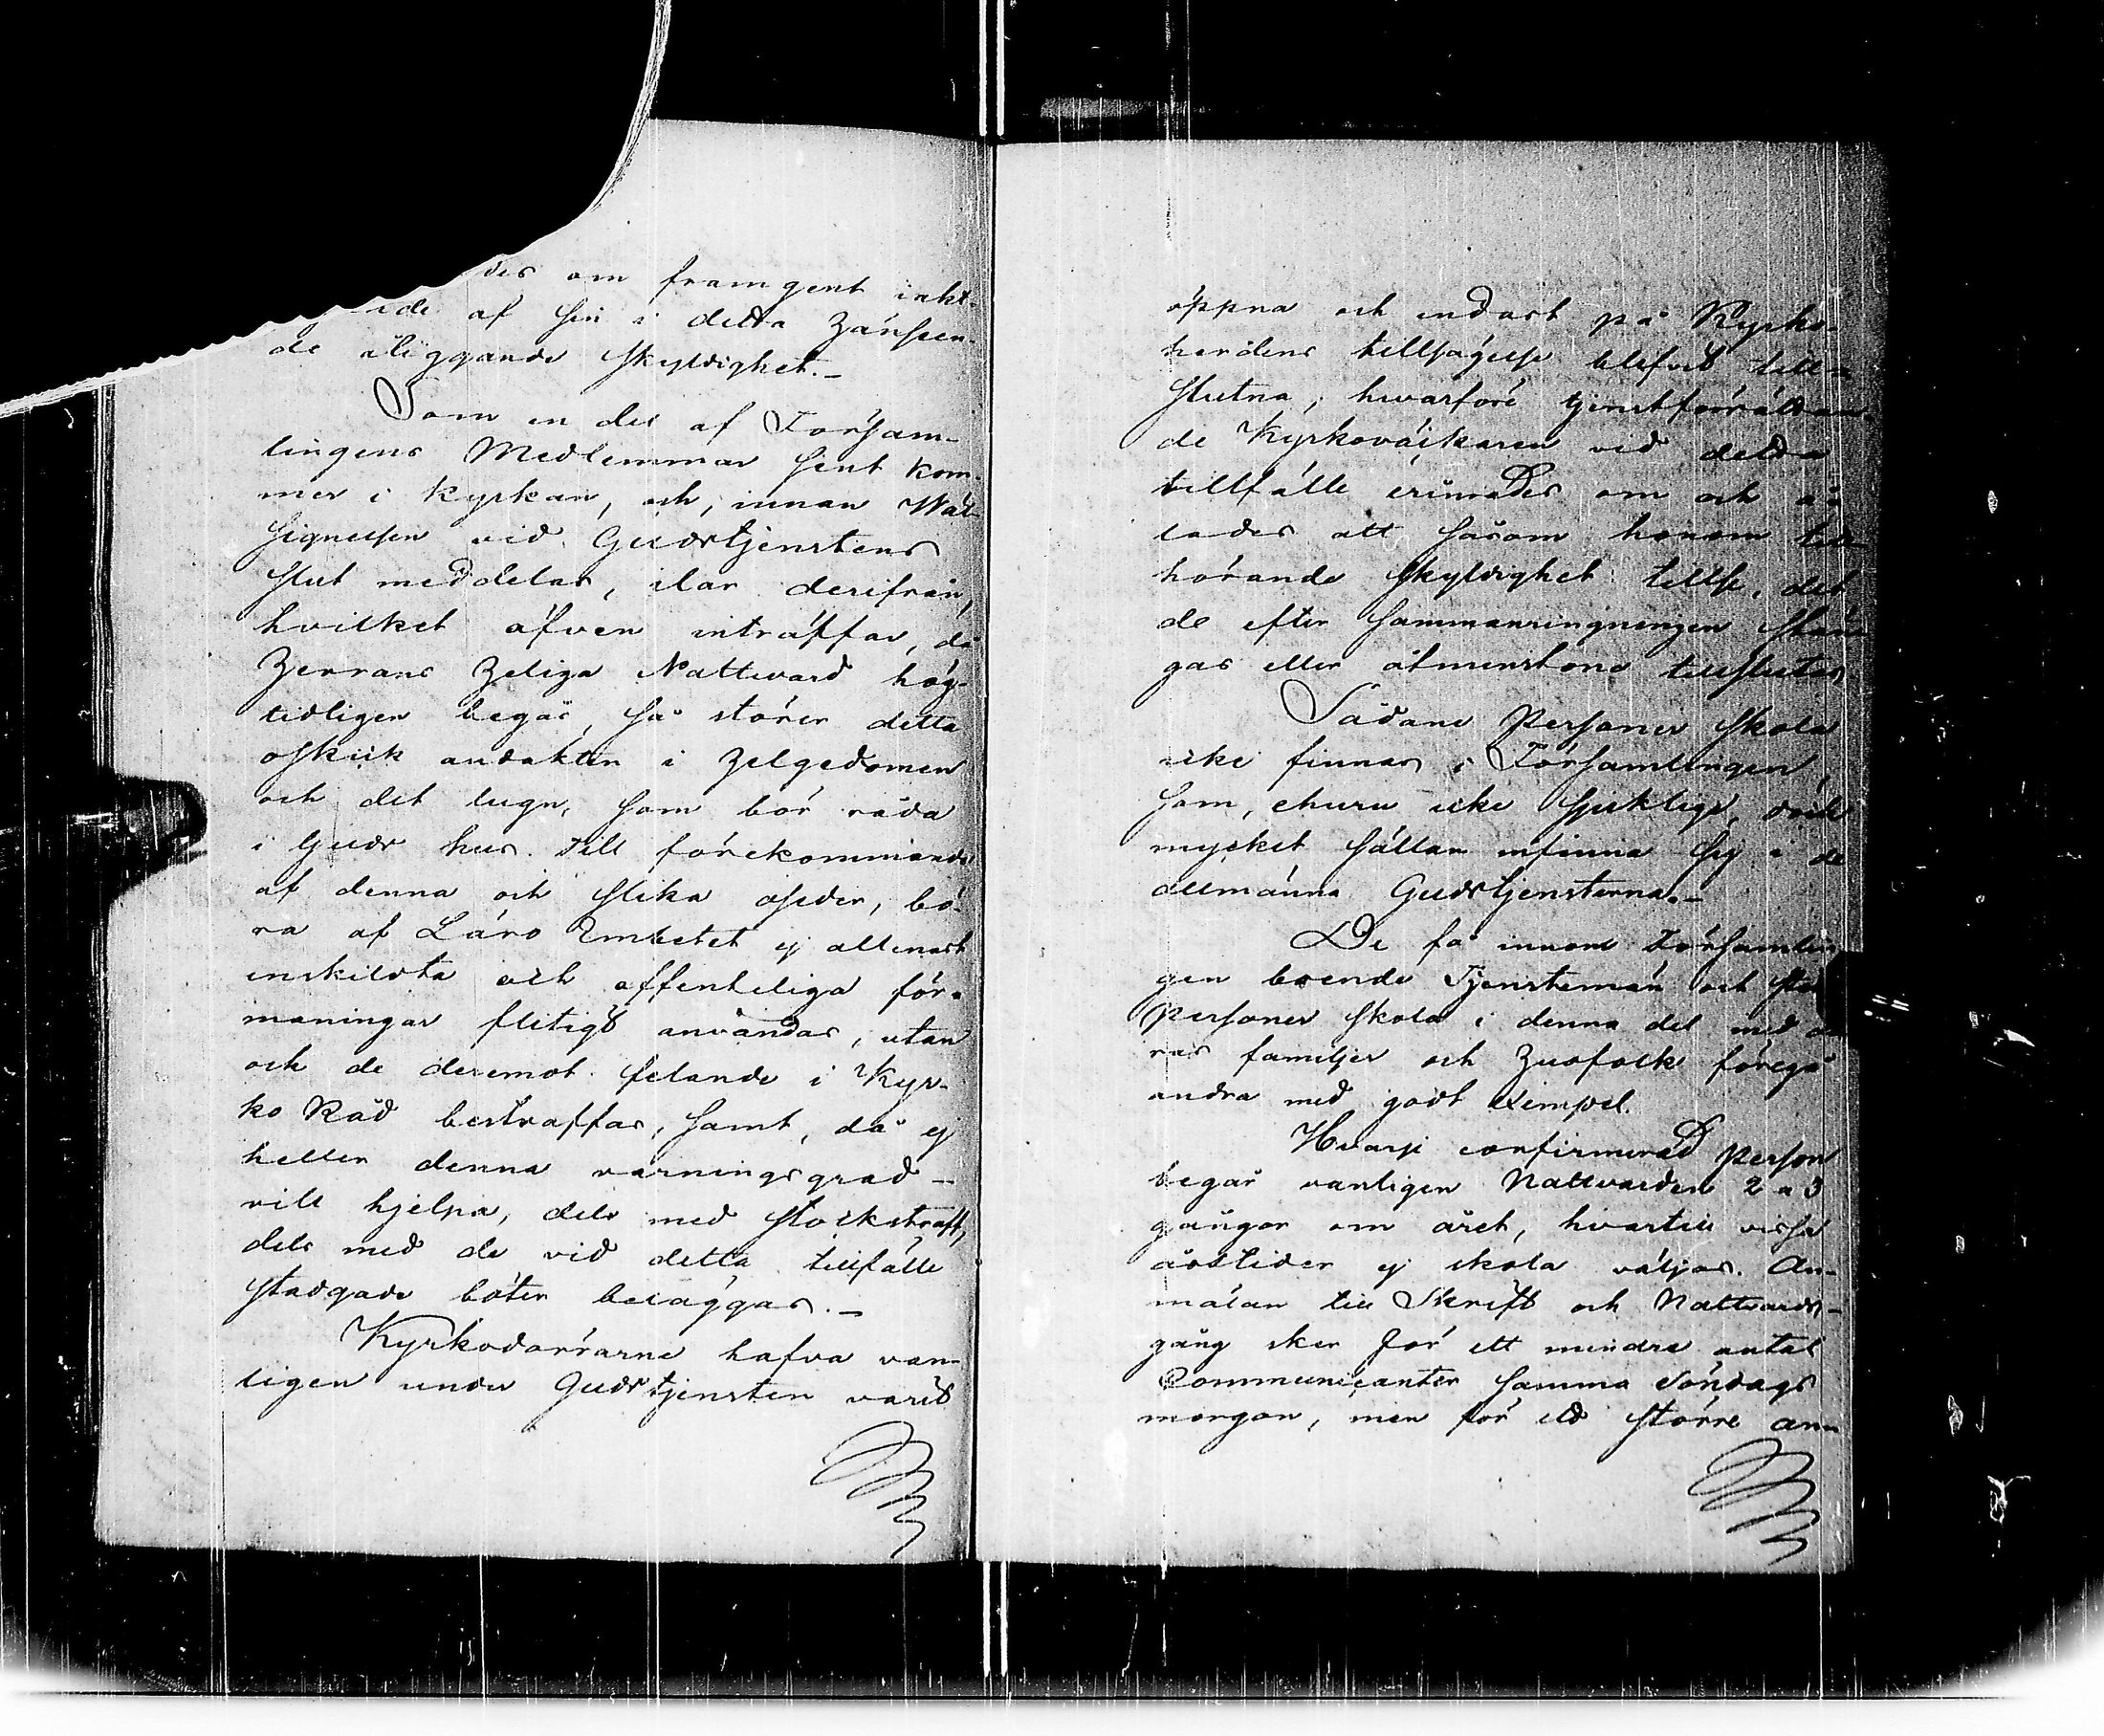 des om framgent iakt-
ide af sin i detta hänseen-
de åliggande skyldighet.-
Som en del af Försam-
lingens Medlemmar sent kom-
mer i kyrkan, och, innan Wäl-
signelsen vid Gudstjenstens
slut meddelas, ilar derifrån,
hvilket äfven inträffar, då
Herrans Heliga Nattvard hög-
tidligen begås, så störer detta
oskick andakten i Helgedomen
och det lugn, som bör råda
i Guds hus. Till förekommande
af denna och slika oseder, bö-
ra af Läro Embetet ej allenast
enskildta och offenteliga för-
maningar flitigt användas, utan
och de deremot felande i Kyr-
ko Råd bestraffas, samt, då ej
heller denna varningsgrad
vill hjelpa, dels med stockstraff,
dels med de vid detta tillfälle
stadgade böter beläggas.-
Kyrkodörrarne hafva van-
ligen under Gudstjensten varit
öppna och endast på Kyrko-
herdens tillsägelse blifvit till-
slutna, hwarföre tjenstförrättan-
de Kyrkoväktaren vid detta
tillfälle erinrades om och å-
lades att såsom honom till-
hörande skyldighet tillse, det
de efter sammanringningen stän-
gas eller åtminstone tillslutas
Sådane Personer skola
icke finnas i Församlingen,
som, ehuru icke sjuklige, dock
mycket sällan infinna sig i de
allmänna Gudstjensterna.-
De få innom Församlin-
gen boende Tjenstemän och stånds
Personer skola i denna del med de-
ras familjer och Husfolk föregå
andra med godt Exempel.
Hvarje confirmerad person
begår vanligen Nattvarden 2 a 3
gångor om året, hvartill vissa
årstider ej skola väljas. An-
mälan till Skrift och Nattvards-
gång sker för ett mindre antal
Communicanter samma Söndags
morgon, men för ett större an-